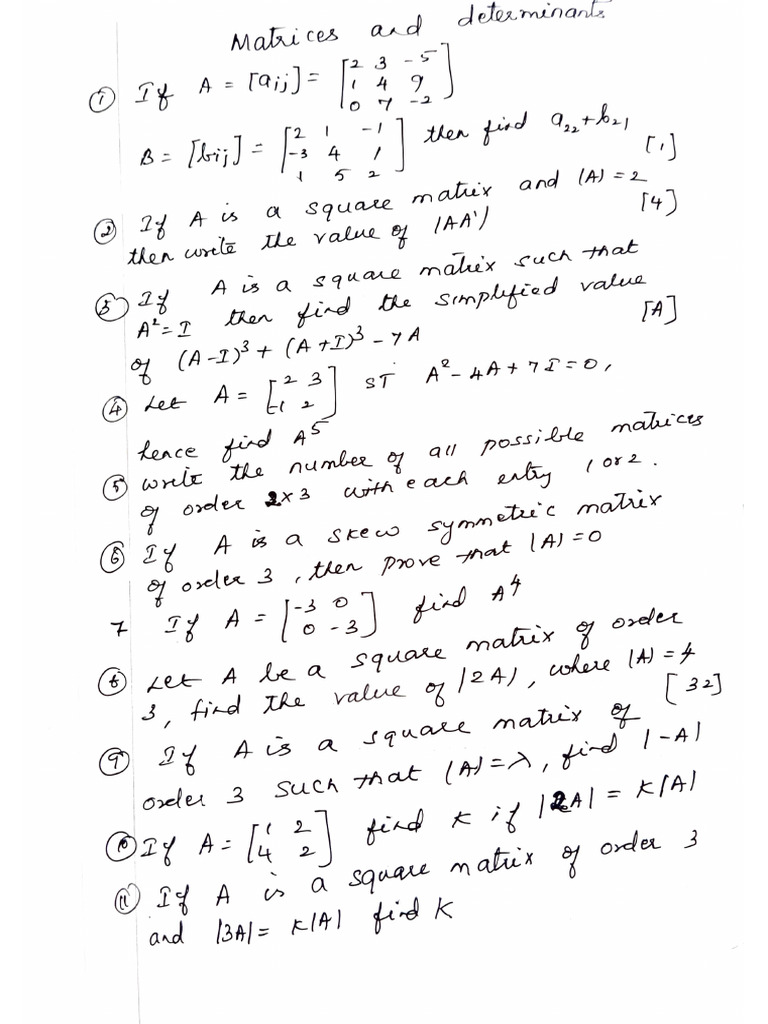 Matrices and determinants
① If A = [aij] = [2 3 -5
1 4 9
0 7 -2]
B = [bij] = [2 1 -1
-3 4 1
1 5 2] then find a22+b21
[1]
② If A is a square matrix and |A| = 2
then write the value of |AA'| [4]
③ If A is a square matrix such that
A²=I then find the simplified value
of (A-I)³ + (A+I)³ - 7A [A]
④ Let A = [2 3
-1 2] ST A² - 4A + 7I = 0,
hence find A⁵
⑤ write the number of all possible matrices
of order 2x3 with each entry 1 or 2.
⑥ If A is a skew symmetric matrix
of order 3, then prove that |A|=0
7 If A = [-3 0
0 -3] find A⁴
⑧ Let A be a square matrix of order
3, find the value of |2A|, where |A|=4
[32]
⑨ If A is a square matrix of
order 3 such that |A|=λ, find |-A|
⑩ If A = [1 2
4 2] find K if |2A| = K|A|
⑪ If A is a square matrix of order 3
and |3A|= K|A| find K